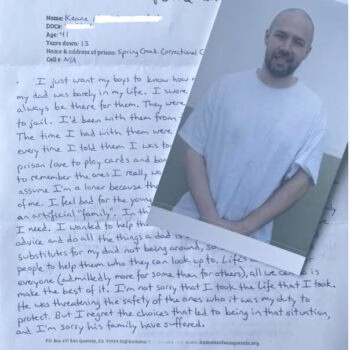 Name: Keane
DOC#:
Age: 41
Years down: 13
Name & address of prison: Spring Creek Correctional C
Cell # N/A
I just want my boys to know how
my dad was barely in my life. I swore
always be there for them. They were
to jail. I'd been with them from
The time I had with them were
every time I told them I was to
prison love to play cards and boa
to remember the ones I really wa
assume I'm a loner because th
of me. I feel bad for the young
an artificial "family". In th
I need. I wanted to help th
advice and do all the things a dad is
substitutes for my dad not being around, so
people to help them who they can look up to. Life's
everyone (admittedly more for some than for others), all we can do is
make the best of it. I'm not sorry that I took the life that I took.
He was threatening the safety of the ones who it was my duty to
protect. But I regret the choices that led to being in that situation,
and I'm sorry his family have suffered.